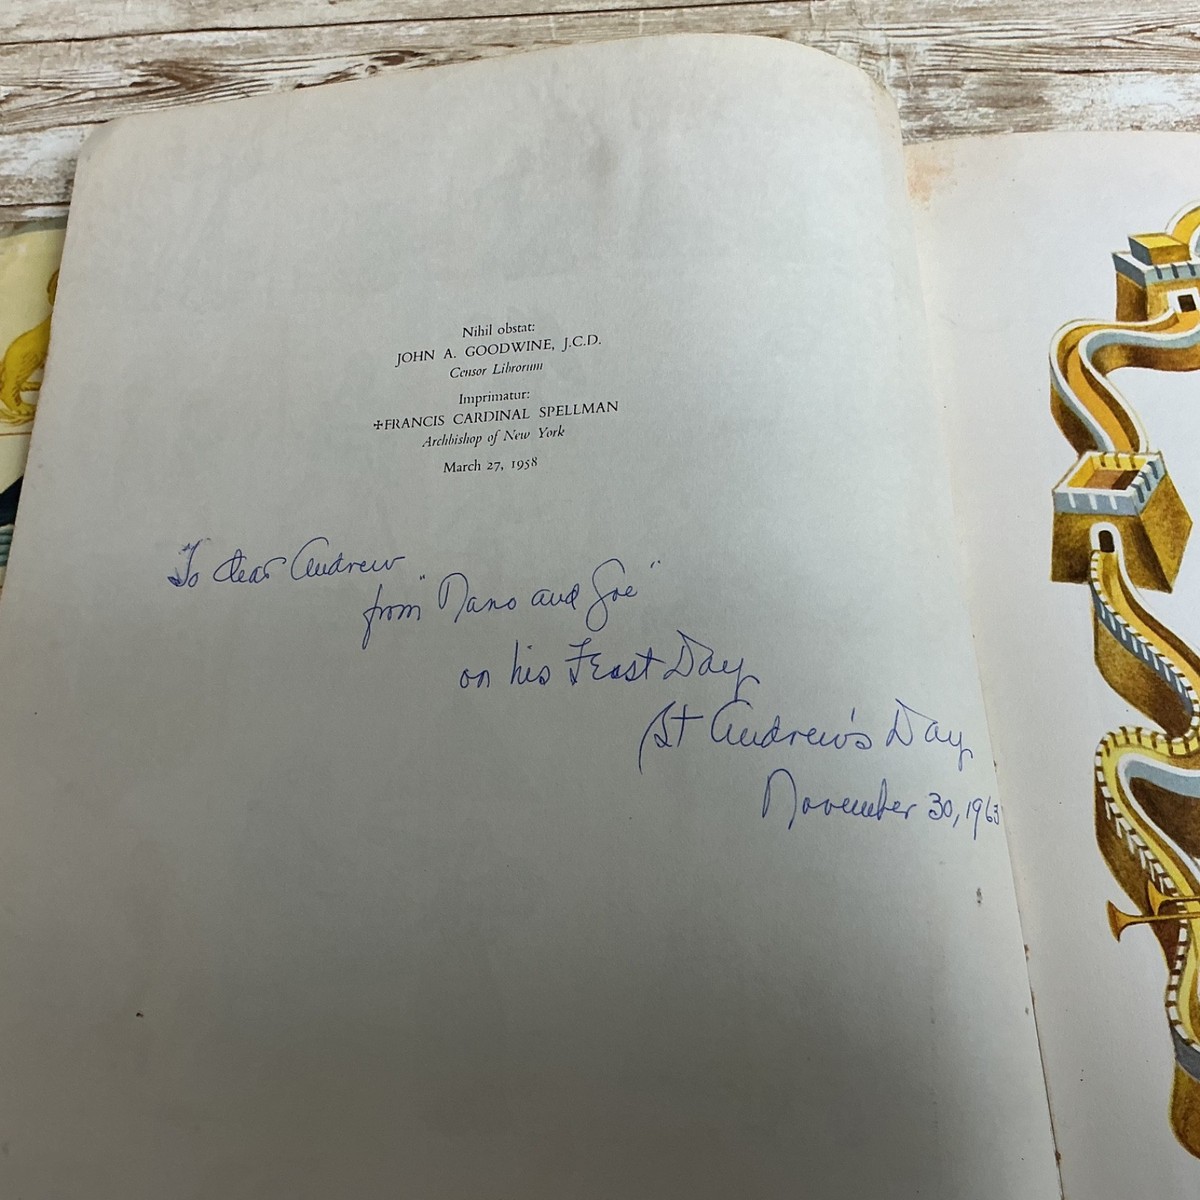 Nihil obstat:
JOHN A. GOODWINE, J.C.D.
Censor Librorum
Imprimatur:
✢FRANCIS CARDINAL SPELLMAN
Archbishop of New York
March 27, 1958
To dear Andrew
from "Nano and Joe"
on his Feast Day
St Andrew's Day
November 30, 1963